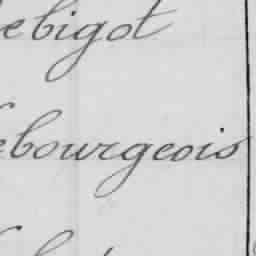 ebigot
ebourgeois